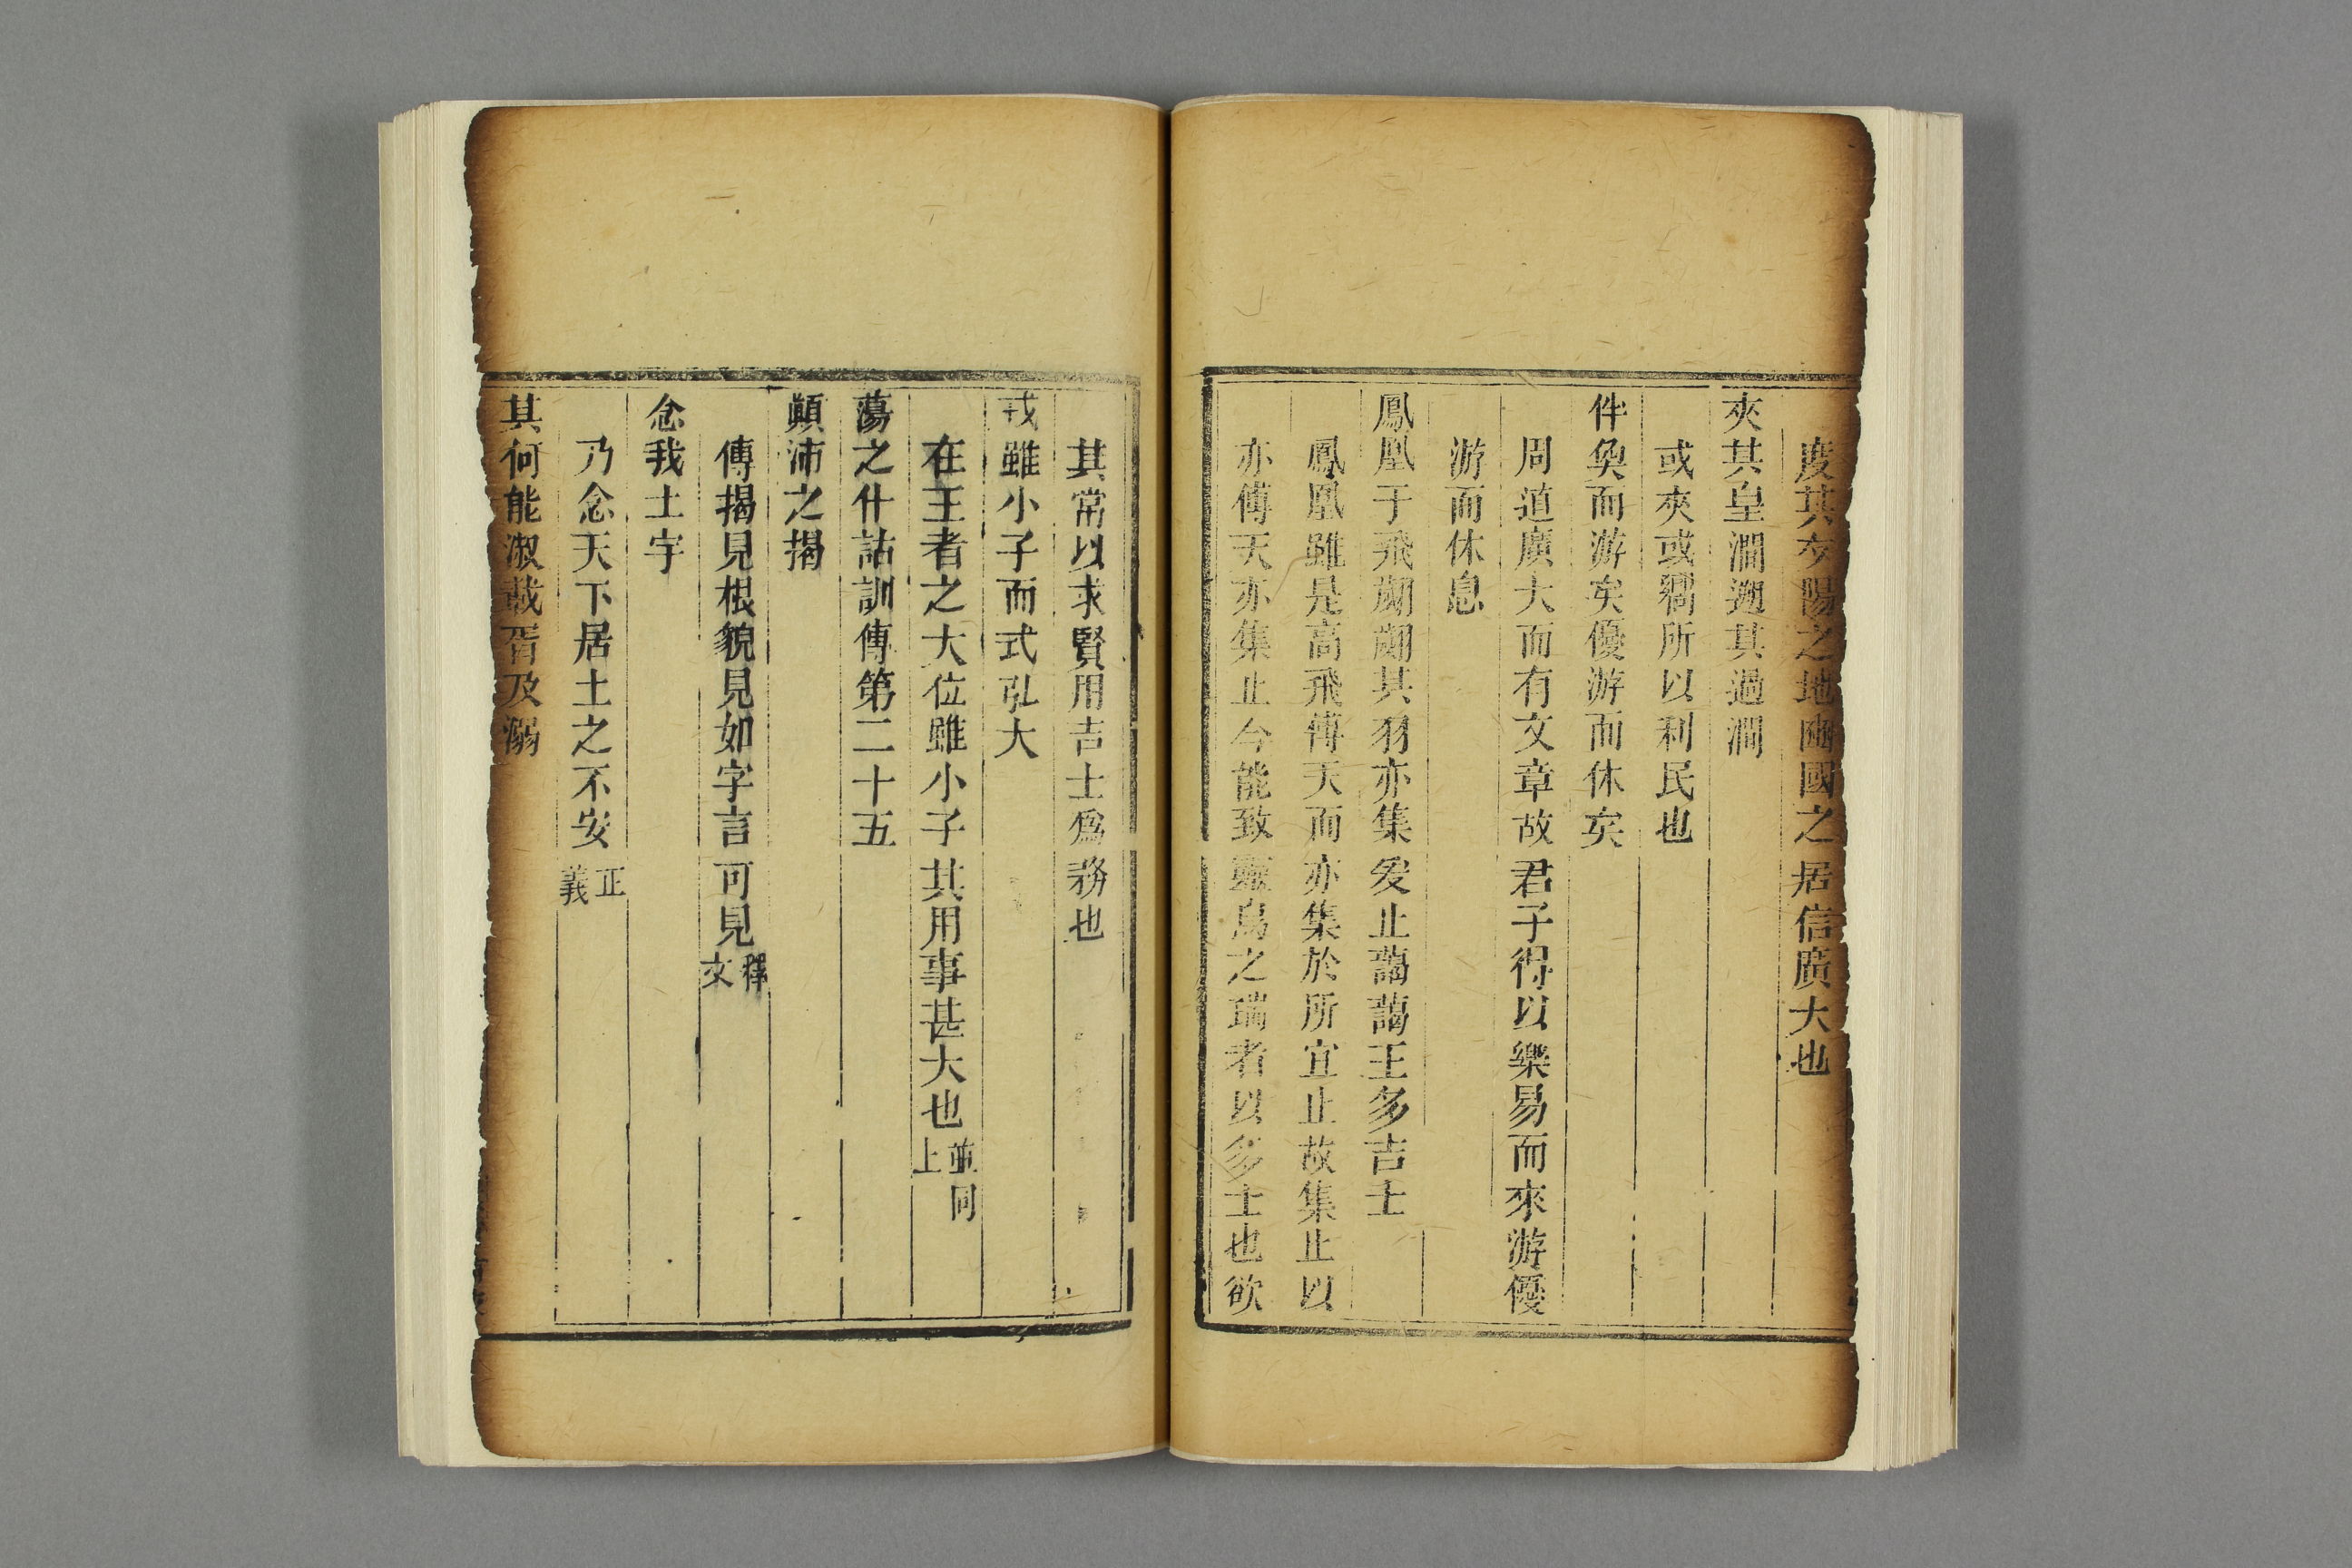 度其夕陽之地豳國之居信廣大也
夾其皇澗遡其過澗
或夾或嚮所以利民也
伴奐而游矣優游而休矣
周道廣大而有文章故君子得以樂易而來游優
游而休息
鳳凰于飛翽翽其羽亦集爰止藹藹王多吉士
鳳凰雖是高飛傅天而亦集於所宜止故集止以
亦傅天亦集止今能致靈鳥之瑞者以多士也欲
其常以求賢用吉士爲務也
戎雖小子而式弘大
在王者之大位雖小子其用事甚大也並同上
蕩之什詁訓傳第二十五
顛沛之揭
傳揭見根貌見如字言可見釋文
念我土宇
乃念天下居土之不安正義
其何能淑載胥及溺